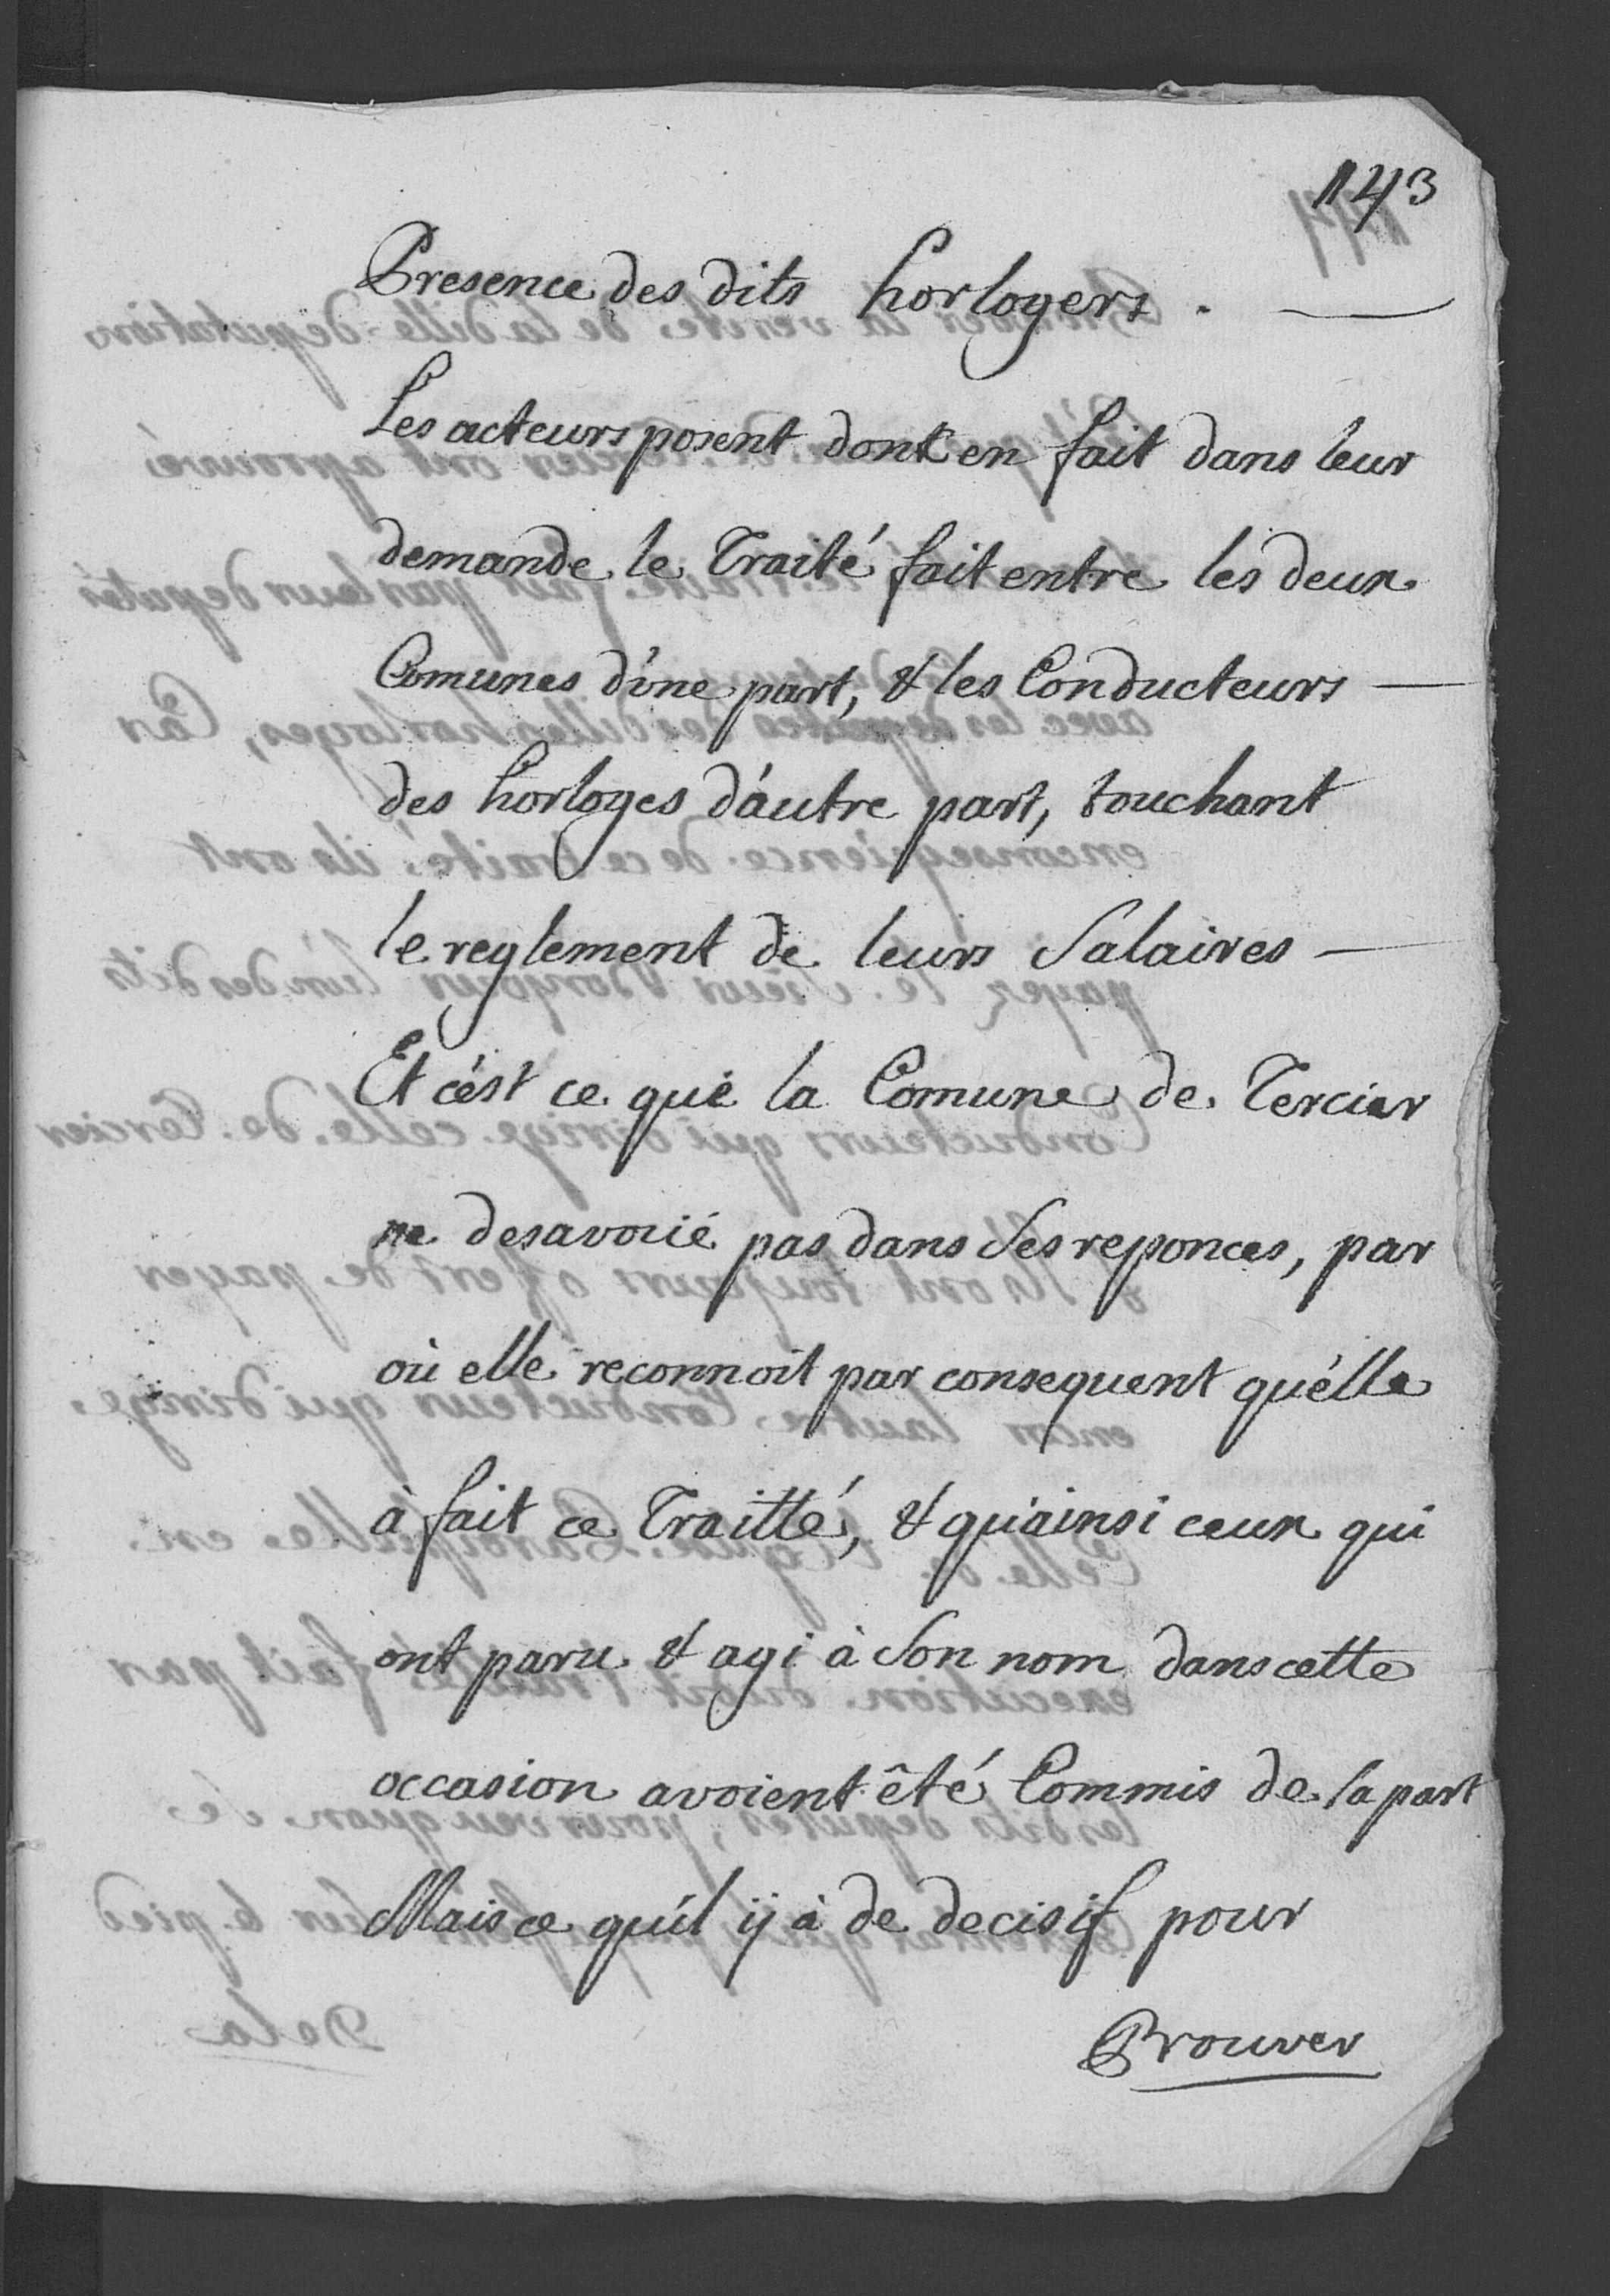 143
Presence des dits horlogers. —
Les acteurs posent dont en fait dans leur
demande le Traité fait entre les deux
Comunes d'úne part, & les Conducteurs —
des horloges d'áutre part, touchant
le reglement de leurs Salaires —
Et c'ést ce que la Comune de Cercier
ne desavoüé pas dans Ses reponces, par
où elle reconnoit par consequent qu'élle
à fait ce Traitté, & qu'ainsi ceux qui
ont paru & agi à Son nom dans cette
occasion avoient êté Commis de la part
Mais ce qu'íl ij à de decisif pour
Prouver